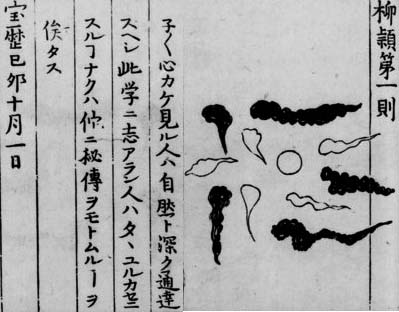 柳頴第一則
子〱心カケ見ル人ハ自然ト深ク通達
スヘシ此学ニ志アラン人ハタヽユルカセニ
スルヿナクハ佗ニ秘傳ヲモトムルヿヲ
俟タス
宝歴己卯十月一日